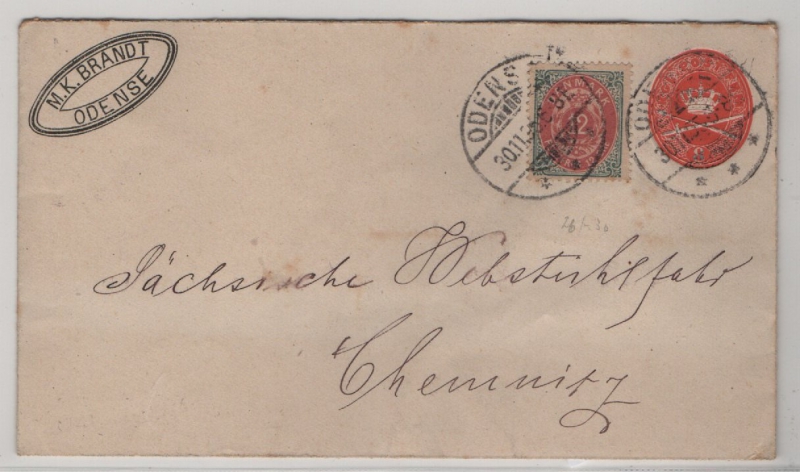 M.K. BRANDT
ODENSE
ODENS
30.11
DANMARK
12
8
26/-30
Sächsische Webstuhlfabr
Chemnitz